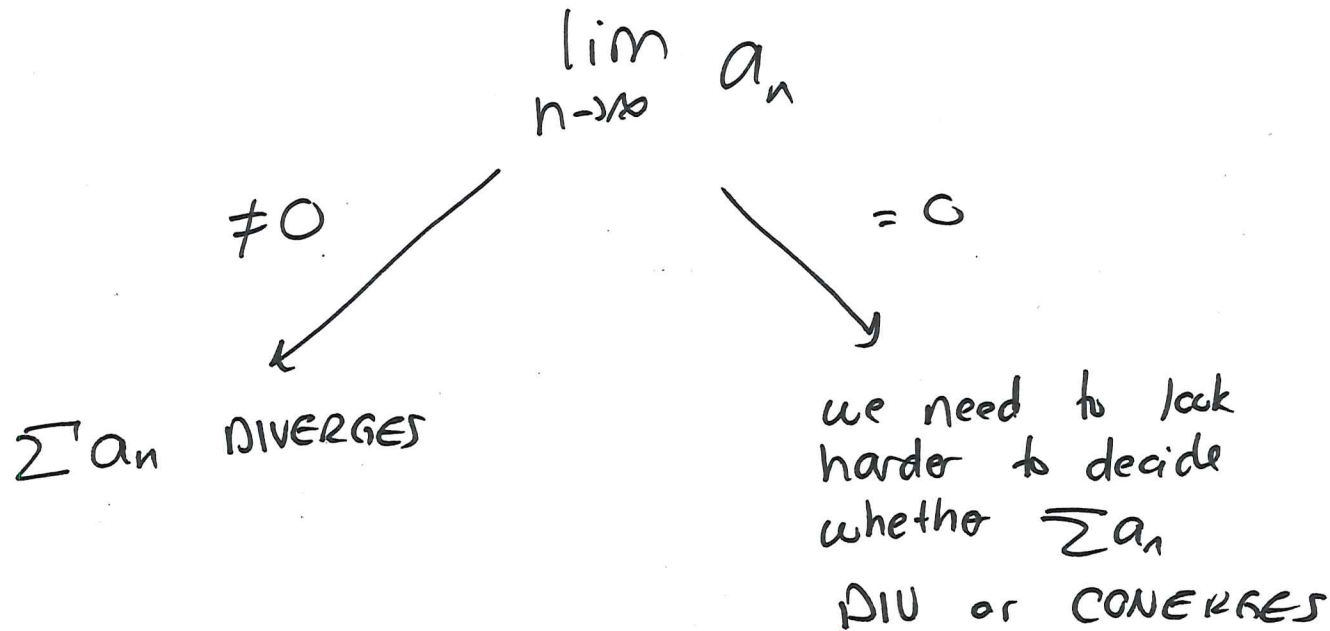 lim a_n
n→∞
≠0
= 0
∑a_n DIVERGES
we need to look
harder to decide
whether ∑a_n
DIV or CONERGES